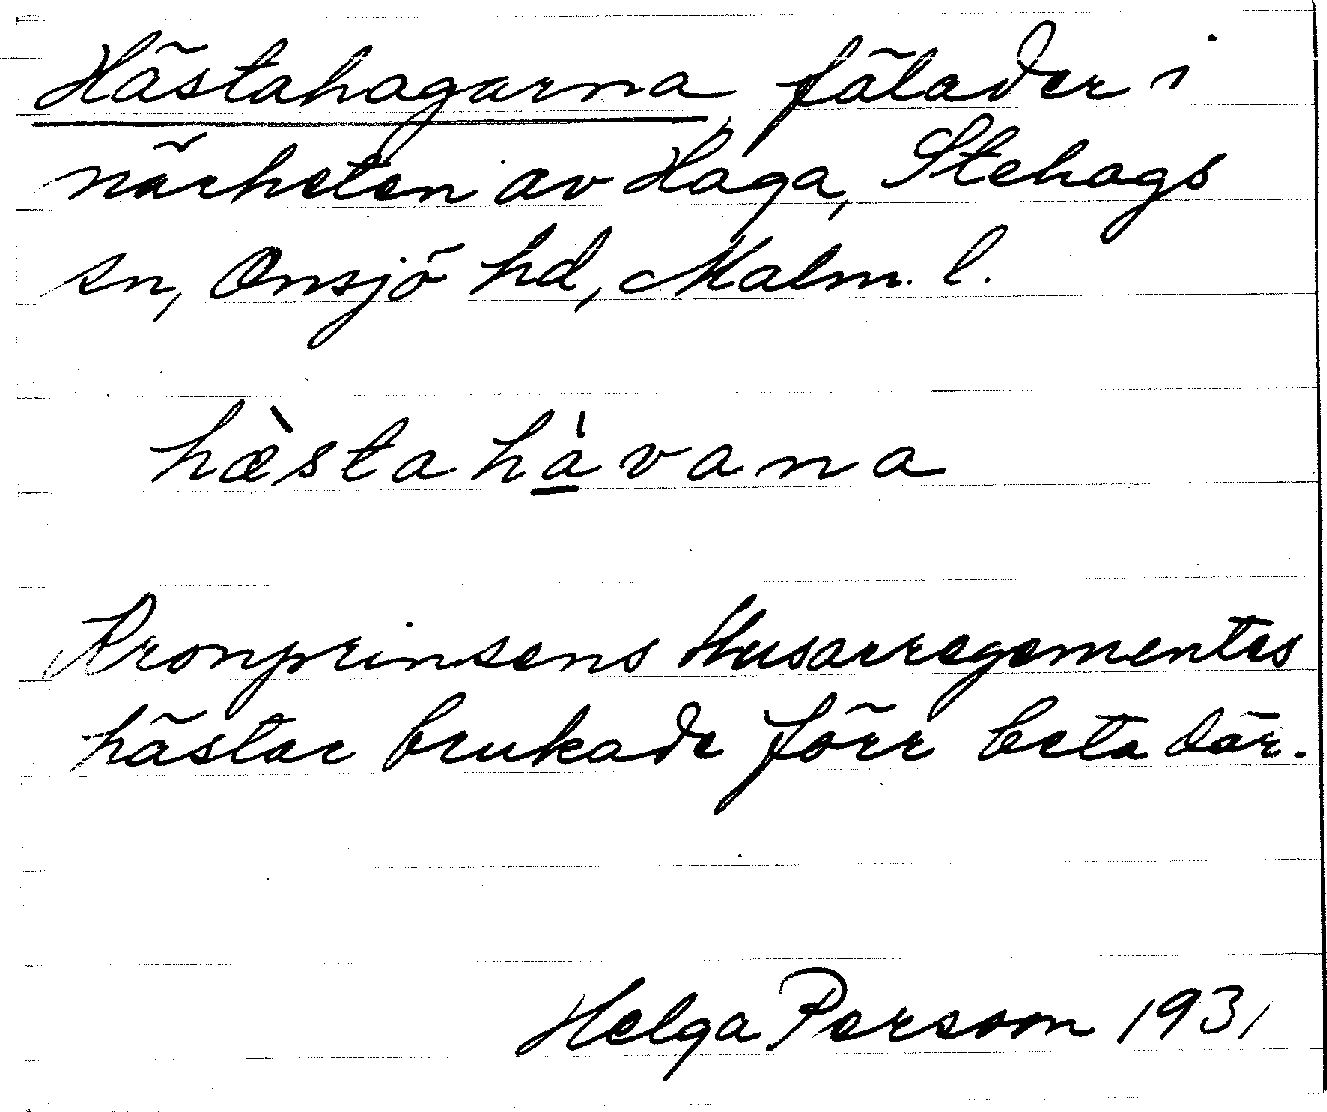 Hästahagarna, fälader i
närheten av Haga, Stehags
sn, Onsjö hd, Malm. l.
hæ̀stahà̱vana
Kronprinsens Husarregementes
hästar brukade förr beta där.
Helga Persson 1931